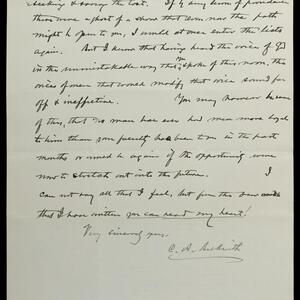 seeking & saving the lost. If by any turn of providence
there were a ghost of a show that even now the path
might be open to you, I would at once enter the lists
again. But I know that having heard the voice of God
in the unmistakable way that spoke of this noon, the
voices of men that would modify that voice sound far
off & ineffective. You may however be sure
of this, that no man has ever had men more loyal
to him than your faculty has been to you in the past
months or would be again if the opportunity were
now to stretch out into the future. I
can not say all that I feel, but from the few words
that I have written you can read my heart!
Very sincerely yours,
C. A. Beckwith